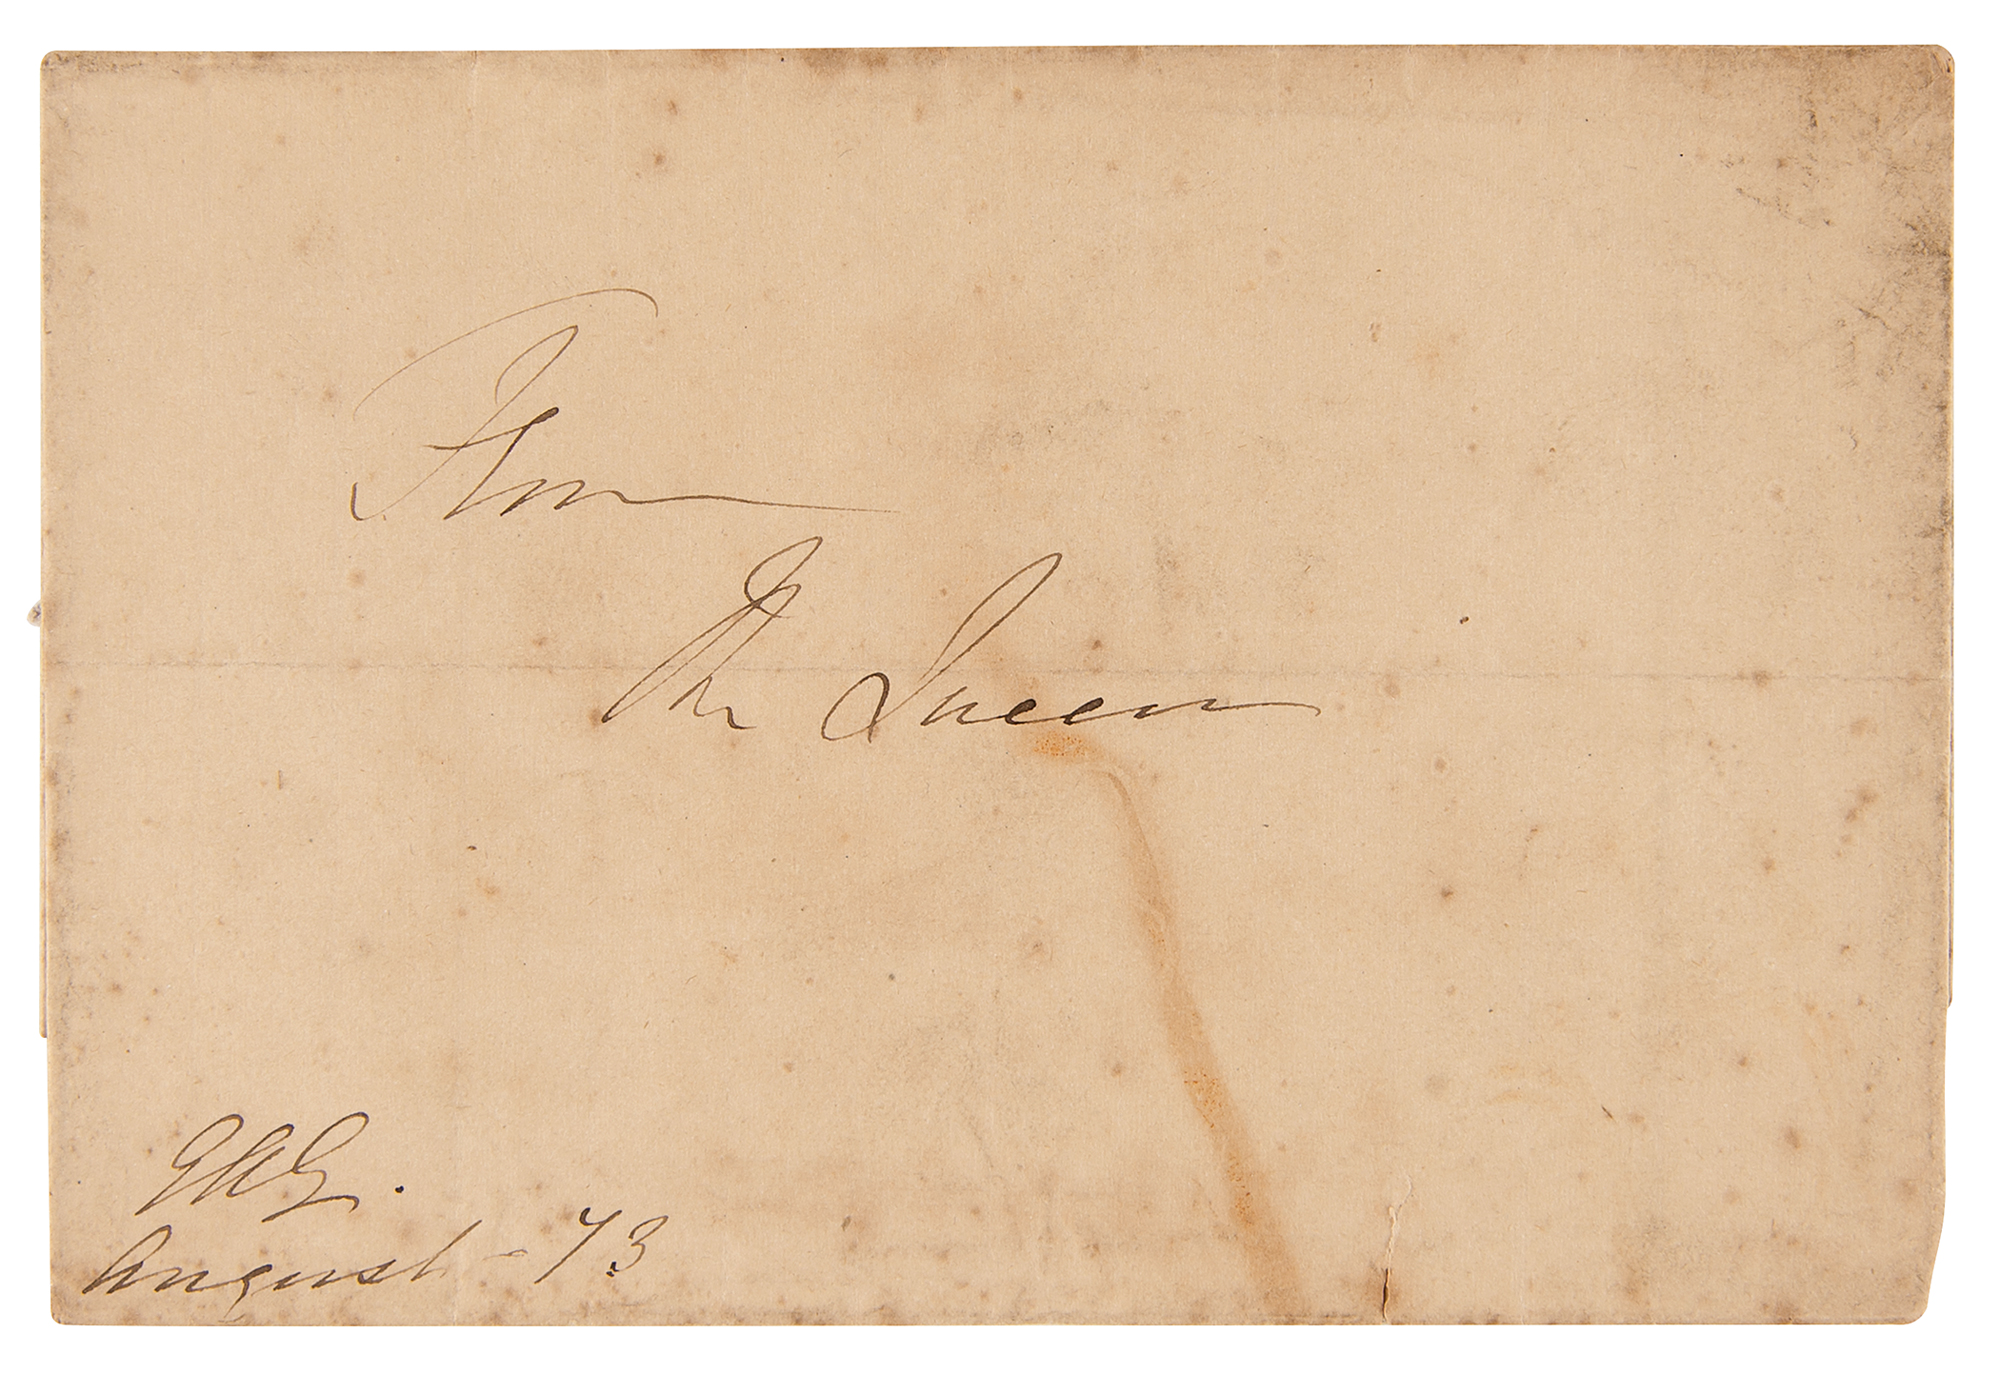 From
The Queen
August - 73